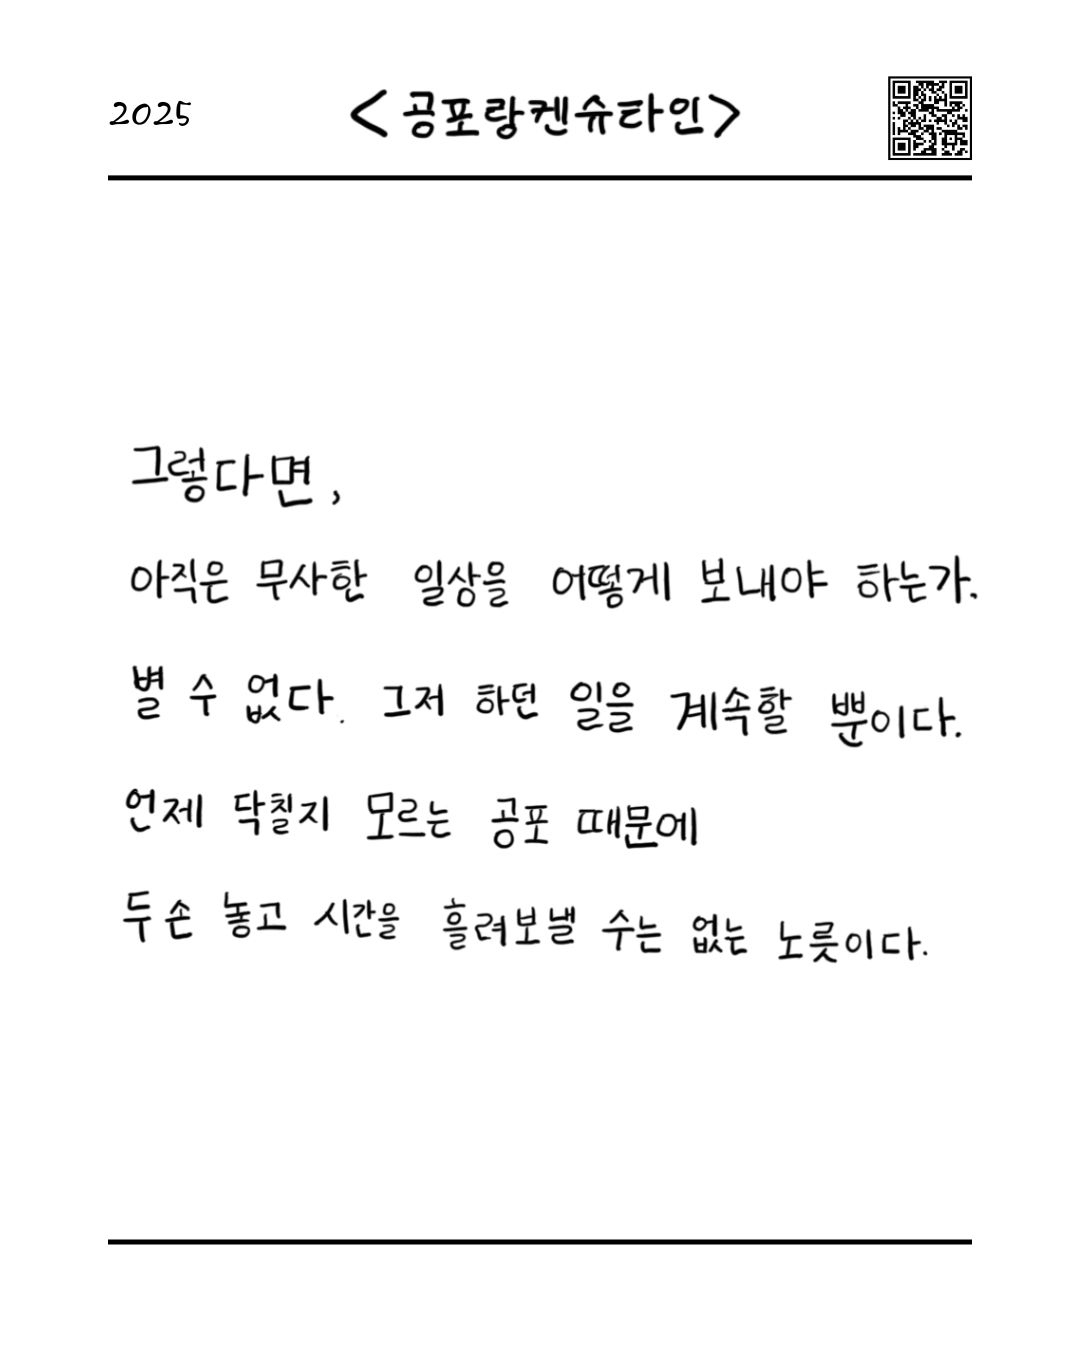 2025
<공포랑켄슈타인>
그렇다면,
아직은 무사한 일상을 어떻게 보내야 하는가.
별 수 없다. 그저 하던 일을 계속할 뿐이다.
언제 닥칠지 모르는 공포 때문에
두 손 놓고 시간을 흘려보낼 수는 없는 노릇이다.